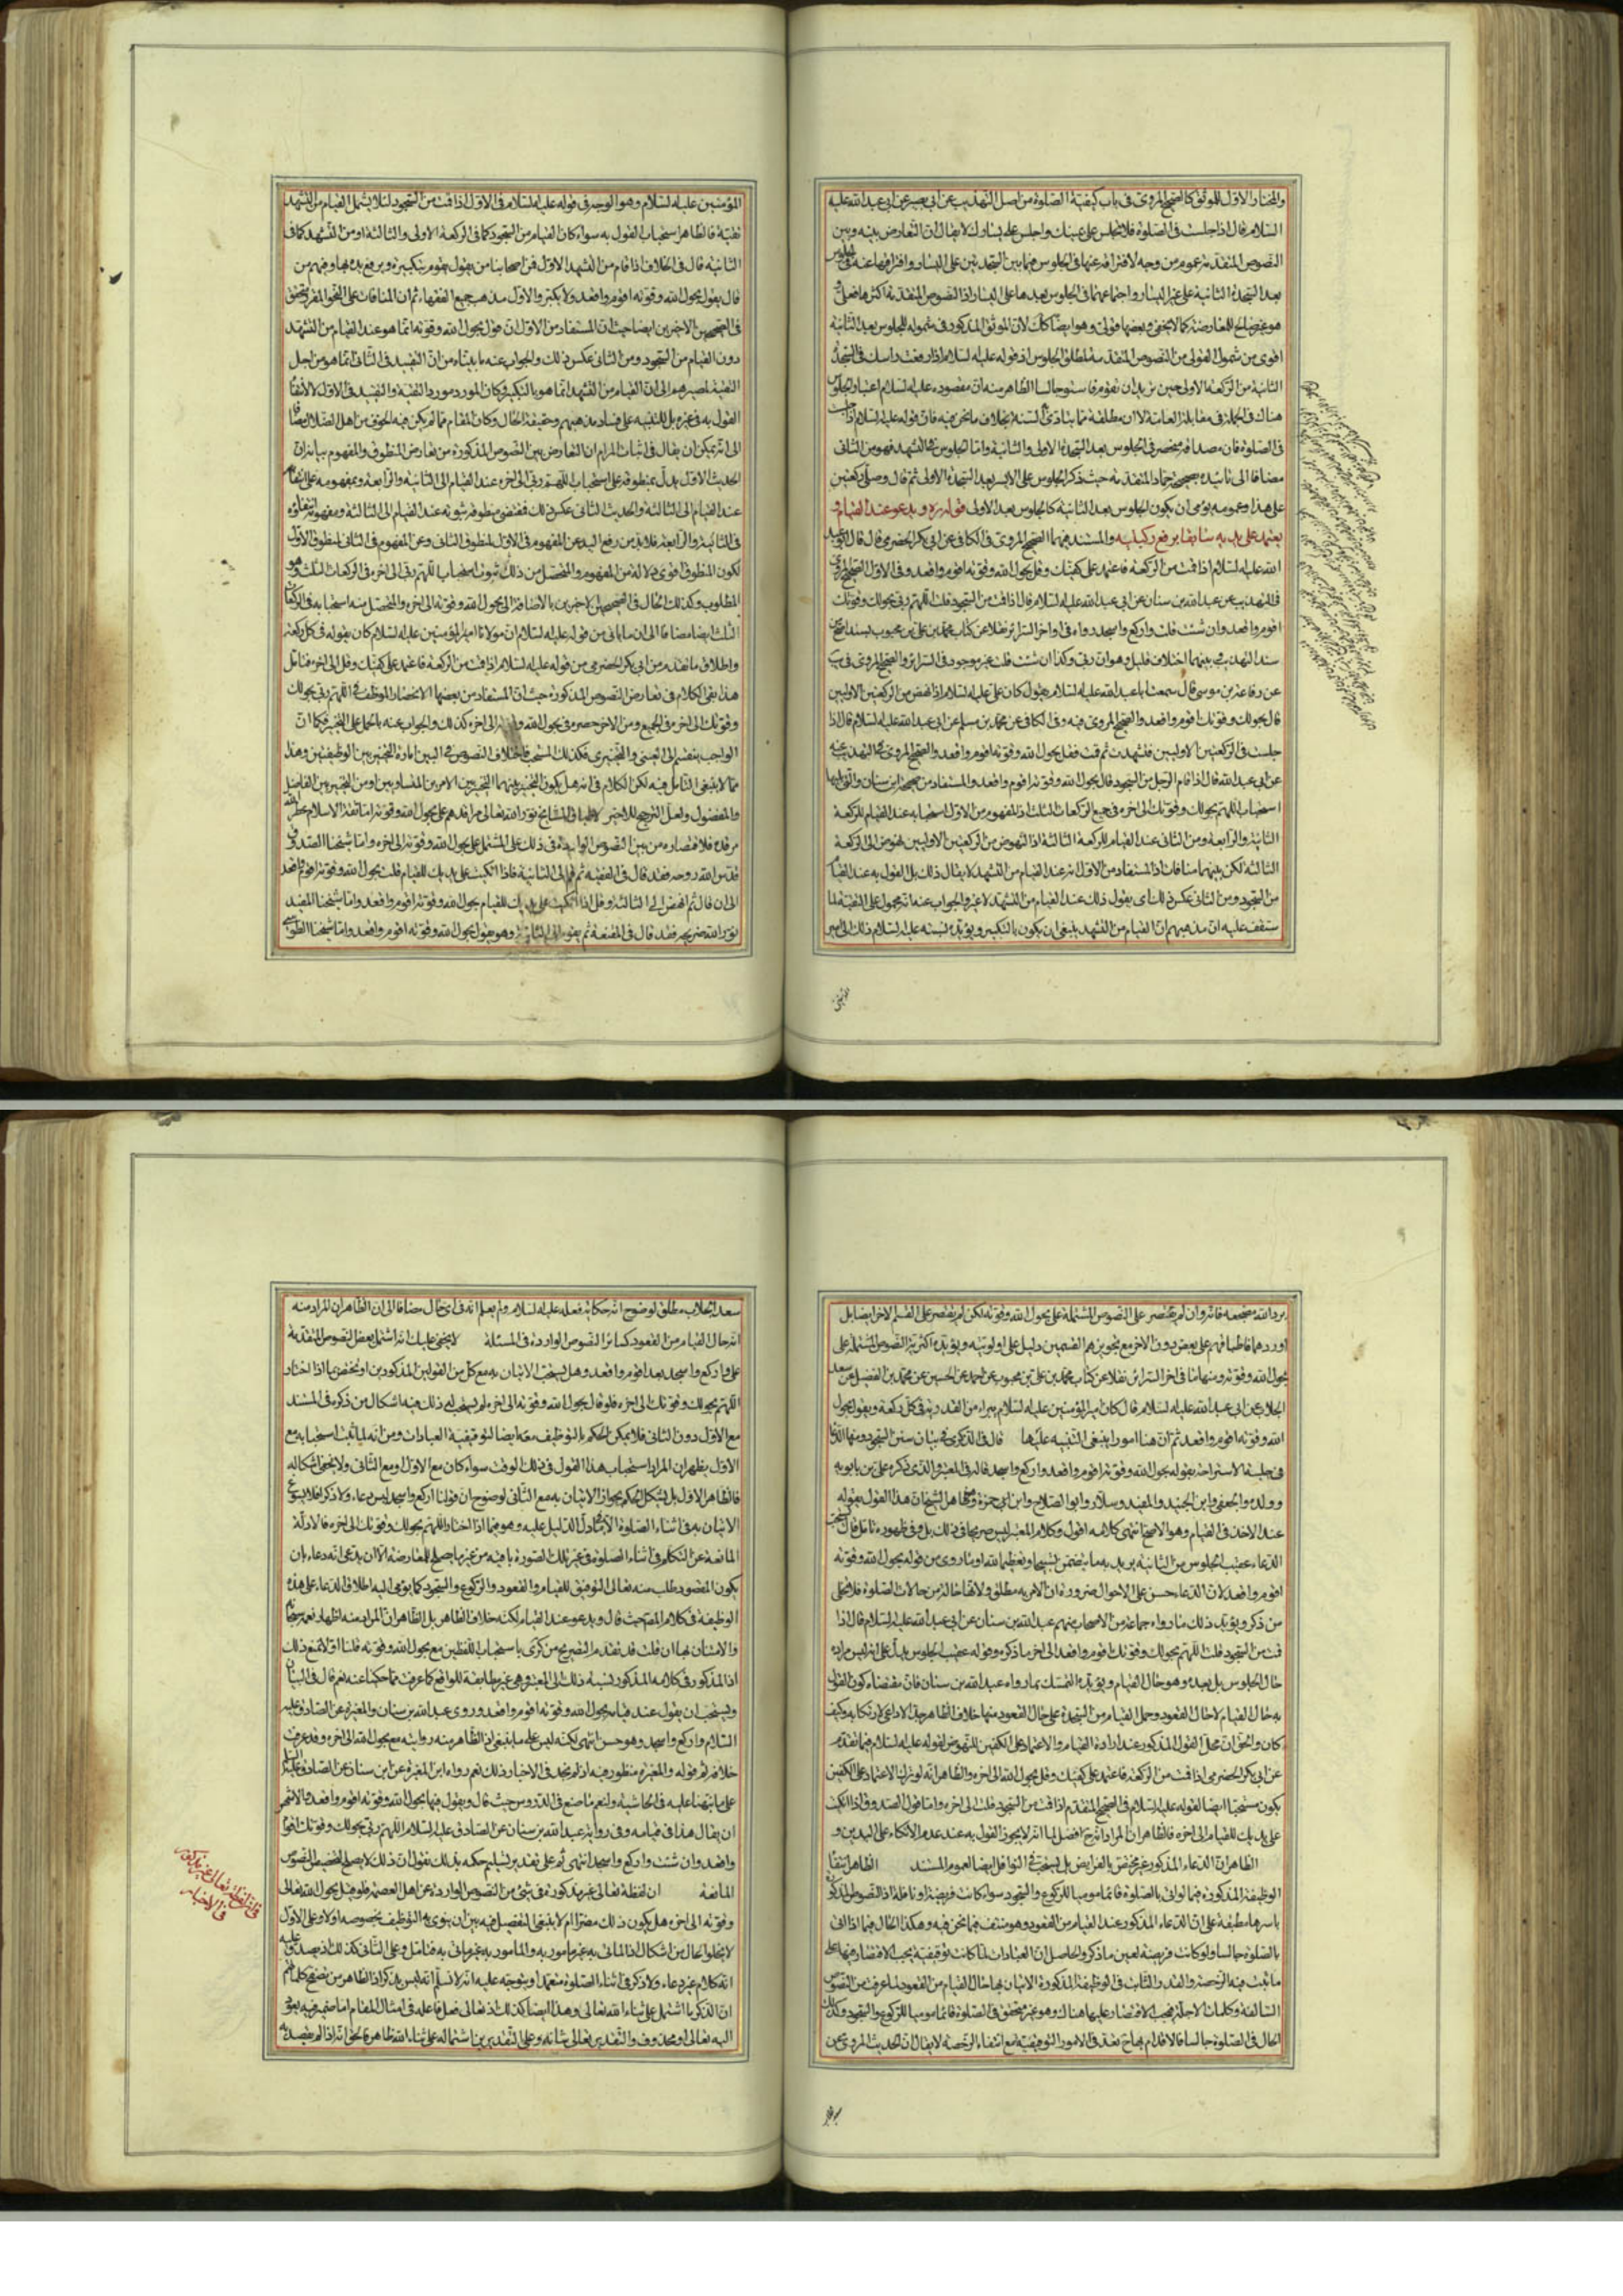 والمختار الاول للموثق كالصحيح المروي في باب كيفية الصلوة من اصل التهذيب عن ابي بصير عن ابي عبد الله عليه
السلام قال اذا جلست في الصلوة فلا تجلس على يمينك واجلس على يسارك لا يقال ان التعارض بينه وبين
النصوص المتقدمة عموم من وجه لافتراقه عنها في الجلوس فيما بين السجدتين على اليسار وافتراقها عنه في الجلوس
بعد السجدة الثانية على غير اليسار واجتماعهما في الجلوس بعدها على اليسار اذ النصوص المتقدمة اكثرها فعلي و
هو غير صالح للمعارضة كما لا يخفى وبعضها قولي وهو ايضا كك لان الموثق المذكور في شموله للجلوس بعد الثانية
اقوى من شمول القولي من النصوص المتقدمة لمطلق الجلوس اذ قوله عليه السلام اذا رفعت راسك في السجدة
الثانية من الركعة الاولى حين تريد ان تقوم فاستو جالسا الظاهر منه ان مقصوده عليه السلام اعتبار الجلوس
هناك في الجملة في مقابلة العامة
في الصلوة فان مصداقه منحصر في الجلوس بعد السجدة الاولى والثانية واما الجلوس في التشهد فهو من الثاني
مضافا الى تائيده بصحيحة حماد المتقدمة حيث ذكر الجلوس على الايسر بعد السجدة الاولى ثم قال وصلى ركعتين
على هذا وعمومه يومى ان يكون الجلوس بعد الثانية كالجلوس بعد الاولى قوله ره ويدعو عند القيام و
يعتمد على يديه سابقا برفع ركبتيه والمستند فيهما الصحيح المروي في الكافي عن ابي بكر الحضرمي قال قال ابو عبد
الله عليه السلام اذا قمت من الركعة فاعتمد على كفيك وقل بحول الله وقوته اقوم واقعد وفي الاول الصحيح المروي
في التهذيب عن عبد الله بن سنان عن ابي عبد الله عليه السلام قال اذا قمت من السجود قلت اللهم ربي بحولك وقوتك
اقوم واقعد وان شئت قلت واركع واسجد رواه في اواخر السرائر نقلا عن كتاب محمد بن علي بن محبوب بسند
سند التهذيب بينهما اختلاف قليل وهو ان ربي وكذا ان شئت قلت غير موجود في السرائر والصحيح المروي في يب
عن رفاعة بن موسى قال سمعت ابا عبد الله عليه السلام يقول كان علي عليه السلام اذا نهض من الركعتين الاوليين
قال بحولك وقوتك اقوم واقعد والصحيح المروي فيه وفي الكافي عن محمد بن مسلم عن ابي عبد الله عليه السلام قال اذا
جلست في الركعتين الاوليين فتشهدت ثم قمت فقل بحول الله وقوته اقوم واقعد والصحيح المروي في التهذيب عنه
عن ابي عبد الله قال اذا قام الرجل من السجود قال بحول الله وقوته اقوم واقعد والمستفاد من صحيحة ابن سنان
استحباب اللهم بحولك وقوتك الى اخره في جميع الركعات الثلث اذ المفهوم من الاول استحبابه عند القيام للركعة
الثانية والرابعة ومن الثاني عند القيام للركعة الثالثة اذ النهوض من الركعتين الاوليين نهوض الى الركعة
الثالثة لكن بينهما منافات اذ المستفاد من الاول انه عند القيام من التشهد لا يقال ذلك بل القول به عند القيام
من السجود ومن الثاني عكس ذلك اي يقول ذلك عند القيام من التشهد لا غير والجواب عنه انه محمول على التقية لما
ستقف عليه ان مذهبهم ان القيام من التشهد ينبغي ان يكون بالتكبير ويؤيده نسبته عليه السلام ذلك الى امير
المؤمنين عليه السلام وهو الوجه في قوله عليه السلام في الاول اذا قمت من السجود لئلا يشمل القيام من التشهد
تقية فالظاهر استحباب القول به سواء كان القيام من السجود كما في الركعة الاولى والثالثة او من التشهد كما في
الثانية قال في الخلاف اذا قام من التشهد الاول فمن اصحابنا من يقول يقوم بتكبيرة ويرفع يده بها ومنهم من
قال يقول بحول الله وقوته اقوم واقعد ولا يكبر والاول مذهب جميع الفقهاء ثم ان المنافات على النحو المقرر يتحقق
في الصحيحين الاخيرين ايضا حيث ان المستفاد من الاول ان قول بحول الله وقوته انما هو عند القيام من التشهد
دون القيام من السجود ومن الثاني عكس ذلك والجواب عنه ما بيناه من ان التقييد في الثاني انما هو من اجل
التقية لمصيرهم الى ان القيام من التشهد انما هو بالتكبير وكان المورد مورد التقية والتقييد في الاول لا لانتفاء
القول به في غيره بل للتنبيه على فساد مذهبهم وحقيقة الحال وكان المقام مما لم يكن فيه الخوف من اهل الضلال مضافا
الى انه يمكن ان يقال في اثبات المرام ان التعارض بين النصوص المذكورة من تعارض المنطوق والمفهوم بيانه ان
الحديث الاول يدل بمنطوقه على استحباب اللهم ربي الى اخره عند القيام الى الثانية والرابعة وبمفهومه على انتفائه
عند القيام الى الثالثة والحديث الثاني عكس ذلك فمقتضى منطوقه ثبوته عند القيام الى الثالثة ومفهومه انتفاؤه
في الثانية والرابعة فلابد من رفع اليد عن المفهوم في الاول لمنطوق الثاني وعن المفهوم في الثاني لمنطوق الاول
لكون المنطوق اقوى دلالة من المفهوم والمتحصل من ذلك ثبوت استحباب اللهم ربي الى اخره في الركعات الثلث وهو
المطلوب وكذلك الحال في الصحيحين الاخيرين بالاضافة الى بحول الله وقوته الى اخره والمتحصل منه استحبابه في الركعات
الثلث ايضا مضافا الى ان ما ياتي من قوله عليه السلام ان مولانا امير المؤمنين عليه السلام كان يقوله في كل ركعة
واطلاق ما تقدم من ابي بكر الحضرمي من قوله عليه السلام اذا قمت من الركعة فاعتمد على كفيك وقل الى اخره فتامل
هذا بقي الكلام في تعارض النصوص المذكورة حيث ان المستفاد من بعضها الانحصار الموظف في اللهم ربي بحولك
وقوتك الى اخره في الجميع ومن الاخر حصره في بحول الله وقوته الى اخره كذلك والجواب عنه بالحمل على التخيير فكما ان
الواجب ينقسم الى العيني والتخييري فكذلك المستحب فاختلاف النصوص في البين امارة التخيير بين الوظيفتين وهذا
مما لا ينبغي التامل فيه لكن الكلام في انه هل يكون التخيير بينهما التخيير بين الامرين المتساويين او من التخيير بين الفاضل
والمفضول ولعل الترجيح للاخير لاطباق المشايخ نور الله تعالى مراقدهم على بحول الله وقوته اما ثقة الاسلام عطر الله
مرقده فلاقتصاره من بين النصوص الواردة في ذلك على المشتمل على بحول الله وقوته الى اخره واما شيخنا الصدوق
قدس الله روحه فقد قال في الفقيه ثم قم الى الثانية فاذا اتكيت على يديك للقيام قلت بحول الله وقوته اقوم واقعد
الى ان قال ثم انهض الى الثالثة وقل اذا اتكيت على يديك للقيام بحول الله وقوته اقوم واقعد واما شيخنا المفيد
نور الله ضريحه فقد قال في المقنعة ثم يقوم الى الثالثة وهو يقول بحول الله وقوته اقوم واقعد واما شيخنا الطوسي
برد الله مضجعه فانه وان لم يقتصر على النصوص المشتملة على بحول الله وقوته لكن لم يقتصر على القسم الاخر ايضا بل
اوردهما فاطباقهم على بعض دون الاخر مع تجويزهم القسمين دليل على اولويته ويؤيده اكثرية النصوص المشتملة على
بحول الله وقوته ومنها ما في اخر السرائر نقلا عن كتاب محمد بن علي بن محبوب عن احمد عن الحسين عن محمد بن الفضيل عن سعد
الجلاب عن ابي عبد الله عليه السلام قال كان امير المؤمنين عليه السلام يبرء من القدرية في كل ركعة ويقول بحول
الله وقوته اقوم واقعد ثم ان هنا امورا ينبغي التنبيه عليها قال في الذكرى في بيان سنن السجود ومنها الدعاء
في جلسة الاستراحة بقوله بحول الله وقوته اقوم واقعد واركع واسجد قاله في المعتبر والذي ذكره علي بن بابويه
وولده والجعفي وابن الجنيد والمفيد وسلار وابو الصلاح وابن حمزة وهو ظاهر الشيخ ان هذا القول يقوله
عند الاخذ في القيام وهو الاصح انتهى كلامه اقول وكلام المعتبر ليس صريحا في ذلك بل وفي ظهوره تامل قال يستحب
الدعاء عقيب الجلوس من الثانية يريد به ما يتضمن تسبيحا وتعظيما لله او ما روي من قوله بحول الله وقوته
اقوم واقعد لان الدعاء حسن على الاحوال ضرورة ان الامر به مطلق ولانها حالة من حالات الصلوة فلا تخلى
من ذكر ويؤيد ذلك ما رواه جماعة من الاصحاب منهم عبد الله بن سنان عن ابي عبد الله عليه السلام قال اذا
قمت من السجود قلت اللهم بحولك وقوتك اقوم واقعد الى اخر ما ذكره وقوله عقيب الجلوس يدل على انه ليس مراده
حال الجلوس بل بعده وهو حال القيام ويؤيده التمسك بما رواه عبد الله بن سنان فان مقتضاه كون القول
به حال القيام لا حال القعود وحمل القيام من السجدة على حال القعود منها خلاف الظاهر جدا لا داعي لارتكابه وكيف
كان والحق ان محل القول المذكور عند ارادة القيام والاعتماد على الكفين للنهوض لقوله عليه السلام فيما تقدم
عن ابي بكر الحضرمي اذا قمت من الركعة فاعتمد على كفيك وقل بحول الله الى اخره والظاهر انه لو ترك الاعتماد على الكفين
يكون مستحبا ايضا لقوله عليه السلام في الصحيح المتقدم اذا قمت من السجود قلت الى اخره واما قول الصدوق اذا اتكيت
على يديك للقيام الى اخره فالظاهر ان المراد انه ح افضل لا انه لا يجوز القول به عند عدم الاتكاء على اليدين و
الظاهر ان الدعاء المذكور غير مختص بالفرايض بل يستحب في النوافل ايضا لعموم المستند الظاهر انتفاء
الوظيفة المذكورة فيما لو اتى بالصلوة قائما موميا للركوع والسجود سواء كانت فريضة او نافلة اذ النصوص المذكورة
باسرها مطبقة على ان الدعاء المذكور عند القيام من القعود وهو منتف فيما نحن فيه وهكذا الحال فيما اذا اتى
بالصلوة جالسا ولو كانت فريضة لعين ما ذكر والحاصل ان العبادات لما كانت توقيفية يجب الاقتصار فيها على
ما ثبت فيه الرخصة والقدر الثابت في الوظيفة المذكورة الاتيان بها حال القيام من القعود لما عرفت من النصوص
السالفة وكلمات الاجلة فيجب الاقتصار عليها هناك وهو غير متحقق في الصلوة قائما موميا للركوع والسجود وكذلك
الحال في الصلوة جالسا فالاقدام بها ح في الامور التوقيفية مع انتفاء الرخصة لا يقال ان الحديث المروي عن
سعد الجلاب مطلق لوضوح انه حكاية فعله عليه السلام ولم يعلم انه في اي حال مضافا الى ان الظاهر ان المراد منه
انه حال القيام من القعود كسائر النصوص الواردة في المسئلة لا يخفى عليك انه اشتمل بعض النصوص المتقدمة
على واركع واسجد بعد اقوم واقعد وهل يستحب الاتيان به مع كل من القولين المذكورين او يختص بما اذا اختار
اللهم بحولك وقوتك الى اخره فلو قال بحول الله وقوته الى اخره لم يستحب له ذلك فيه اشكال من ذكره في المستند
مع الاول دون الثاني فلا يمكن الحكم بالتوظيف معه ايضا لتوقيفية العبادات ومن انه لما ثبت استحبابه مع
الاول يظهر ان المراد استحباب هذا القول في ذلك الوقت سواء كان مع الاول او مع الثاني ولا يخفى اشكاله
فالظاهر الاول بل يشكل الحكم بجواز الاتيان به مع الثاني لوضوح ان قولنا اركع واسجد ليس دعاء ولا ذكر فلا يسوغ
الاتيان به في اثناء الصلوة الا فيما دل الدليل عليه وهو فيما اذا اختار اللهم بحولك وقوتك الى اخره فالادلة
المانعة عن التكلم في اثناء الصلوة في غير تلك الصورة باقية من غير ما يصلح للمعارضة الا ان يدعى انه دعاء بان
يكون المقصود طلب منه تعالى التوفيق للقيام والقعود والركوع والسجود كما يومى اليه اطلاق الدعاء على هذه
الوظيفة في كلام المصنف حيث قال ويدعو عند القيام لكنه خلاف الظاهر بل الظاهر ان المراد منه اظهار نعم
والامتنان بها ان قلت قد تقدم التصريح من كرى باستحباب اللفظين مع بحول الله وقوته قلنا اولا نمنع ذلك
اذ المذكور في كلامه المذكور نسبة ذلك الى المعتبر وهي غير مطابقة للواقع كما عرفت مما حكينا عنه نعم قال في البيان
ويستحب ان يقول عند قيامه بحول الله وقوته اقوم واقعد وروى عبد الله بن سنان والمغيرة عن الصادق عليه
السلام واركع واسجد وهو حسن انتهى لكنه ليس على ما ينبغي اذ الظاهر منه روايته مع بحول الله الى اخره وقد عرفت
خلافه ثم قوله والمغيرة منظور فيه اذ لم نجد في الاخبار ذلك نعم رواه ابن المغيرة عن ابن سنان عن الصادق عليه السلام
على ما نبهنا عليه في الحاشية ولنعم ما صنع في الدروس حيث قال ويقول فيهما بحول الله وقوته اقوم واقعد والاشهر
ان يقال هذا في قيامه وفي رواية عبد الله بن سنان عن الصادق عليه السلام اللهم ربي بحولك وقوتك اقوم
واقعد وان شئت واركع واسجد انتهى ثم على تقدير تسليم حكمه بذلك نقول ان ذلك لا يصلح لتخصيص النصوص
المانعة ان لفظة تعالى غير مذكورة في شئ من النصوص الواردة عن اهل العصمة فلو قيل بحول الله تعالى
وقوته الى اخره هل يكون ذلك مضرا ام لا ينبغي التفصيل فيه بين ان ينوي به التوظيف بخصوصه اولا وعلى الاول
لا يخلو الحال من اشكال اذ الماتي به غير مامور به والمامور به غير ماتي به فتامل وعلى الثاني كذلك اذ يصدق عليه
انه كلام غير دعاء ولا ذكر في اثناء الصلوة متعمدا ويتوجه عليه انه لا نسلم انه ليس بذكر اذ الظاهر من تصفح كلماتهم
ان الذكر ما اشتمل على ثناء الله تعالى وهذا ايضا كذلك اذ تعالى فعل فاعله في امثال المقام اما ضمير فيه يعود
اليه تعالى او محذوف والتقدير تعالى شانه وعلى التقديرين اشتماله على ثناء الله ظاهر فالحق انه اذا لم يقصد به
في ان لفظة تعالى غير مذكورة
في الاخبار